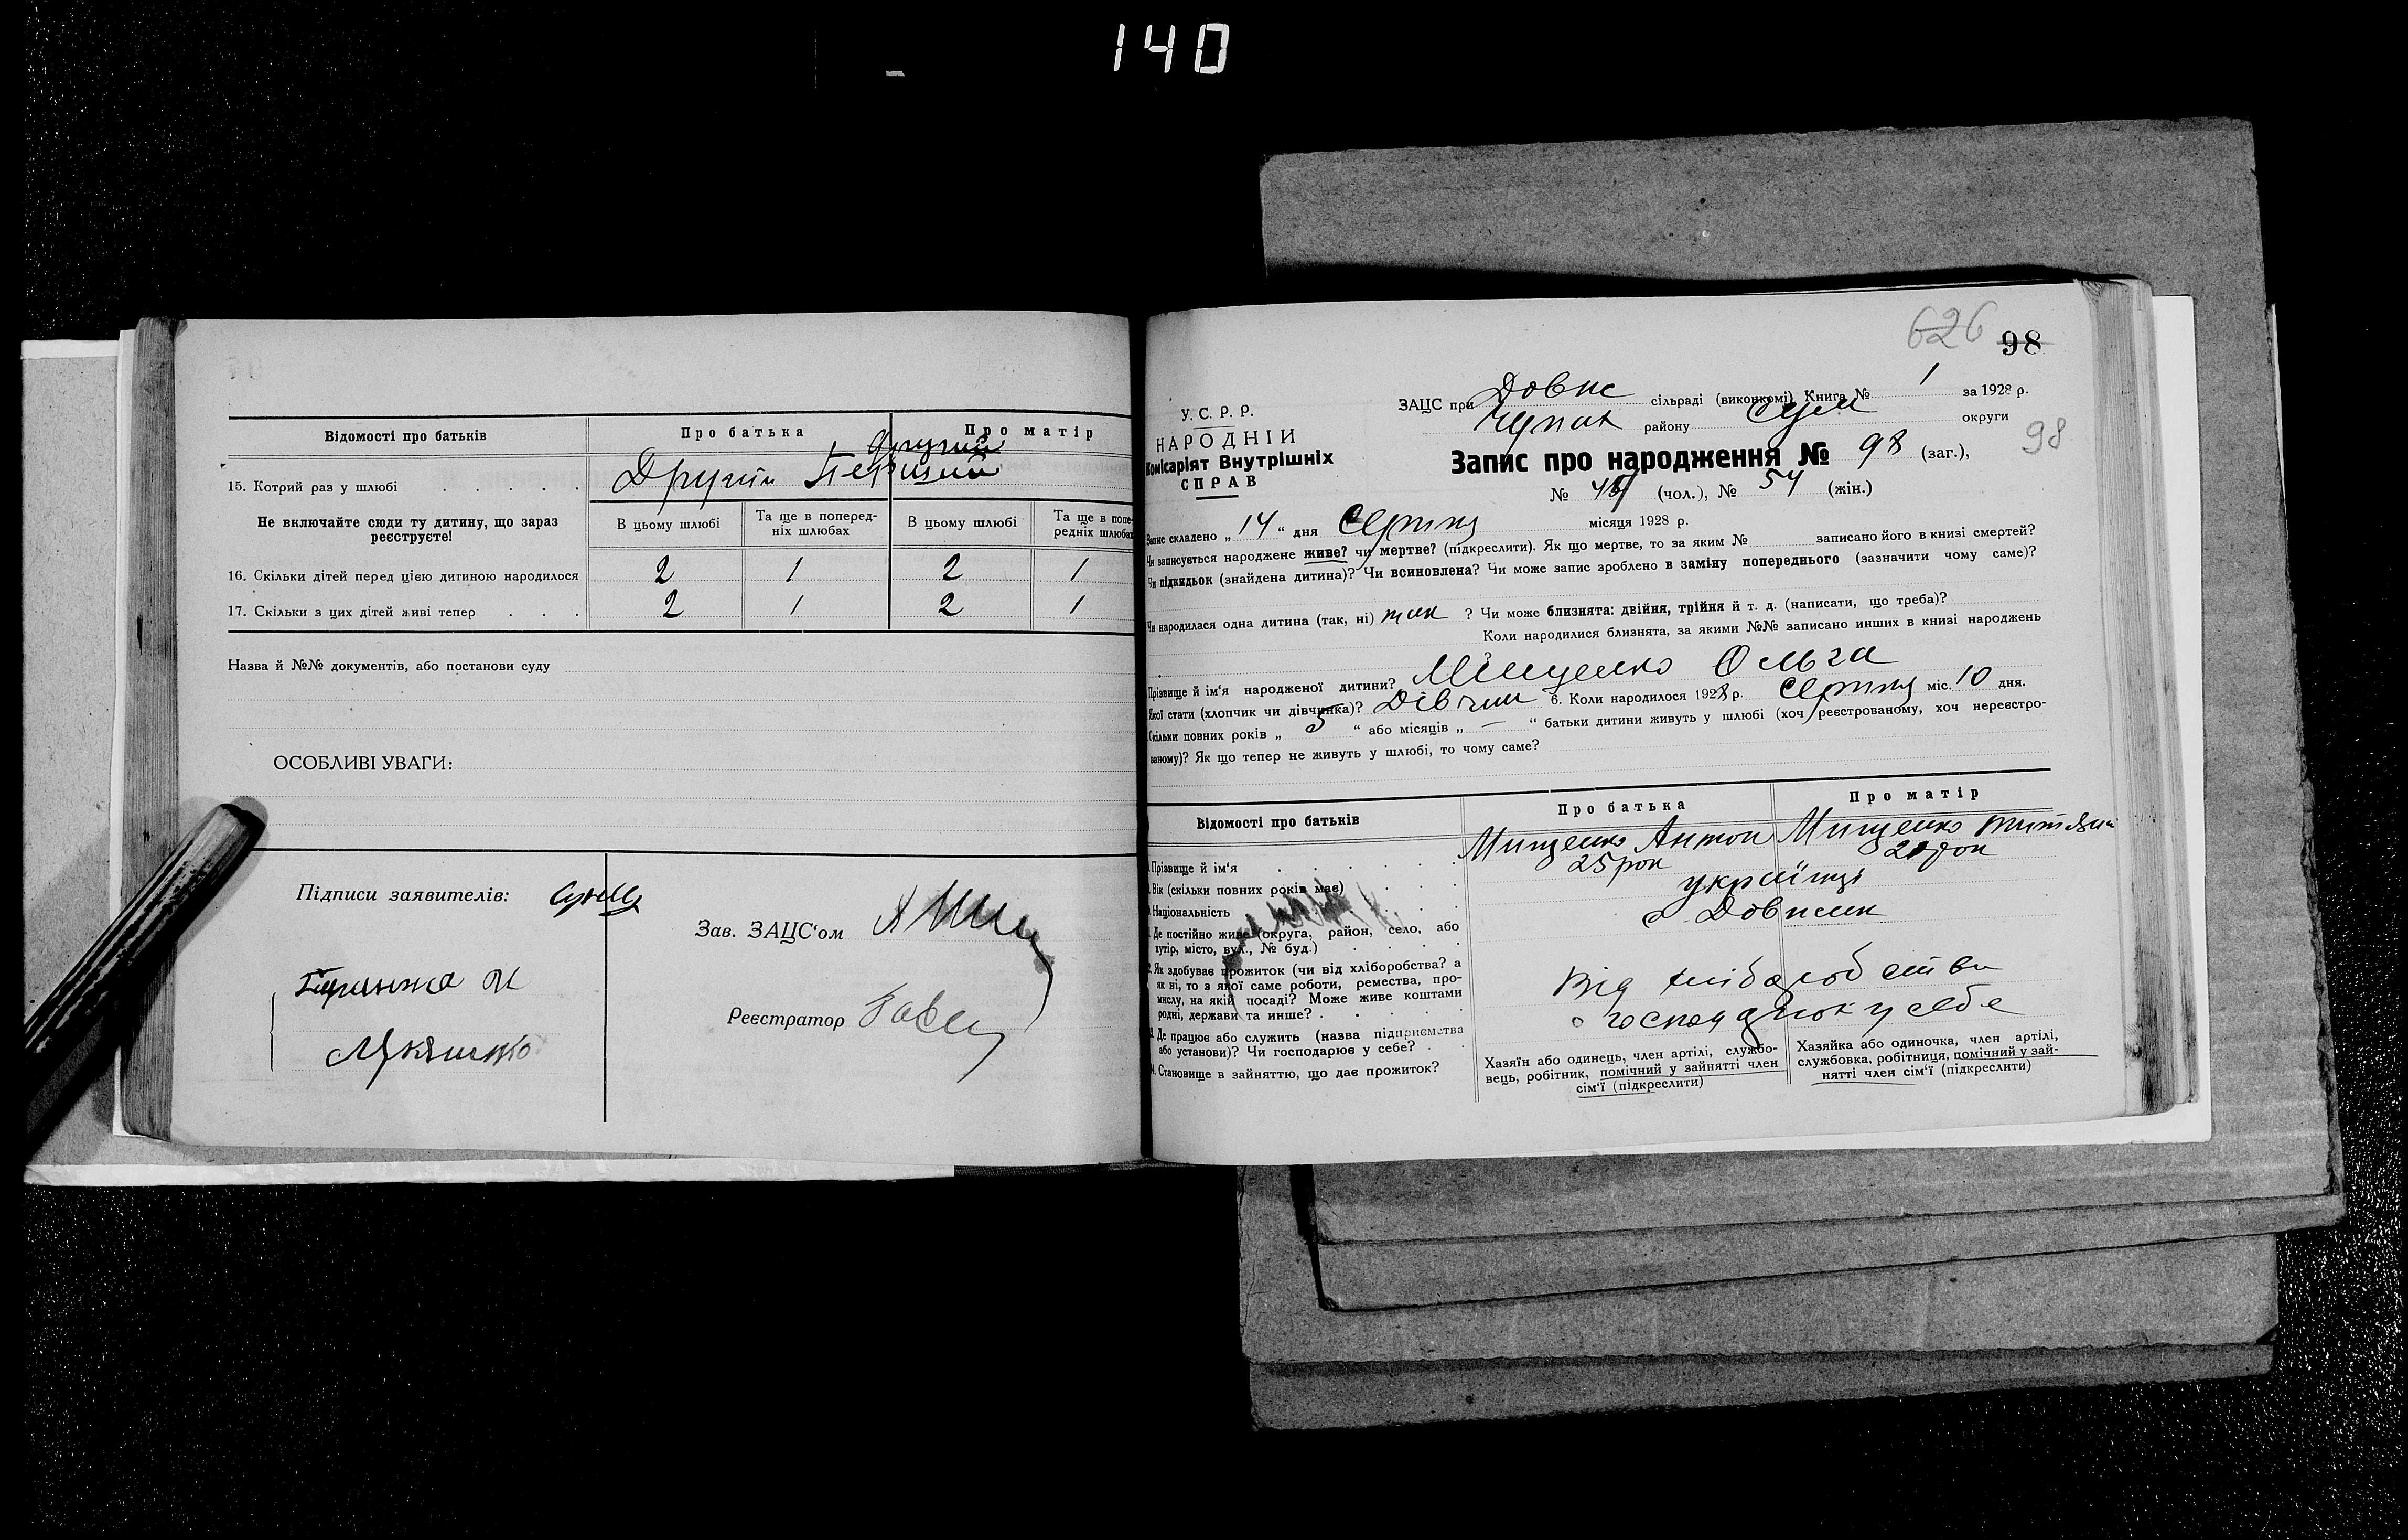 140
Відомості про батьків
Про батька
Про матір
15. Котрий раз у шлюбі
Другий
Перший
другий
Не включайте сюди ту дитину, що зараз реєструєте!
В цьому шлюбі
Та ще в поперед-
ніх шлюбах
В цьому шлюбі
Та ще в попе-
редніх шлюбах
16. Скільки дітей перед цією дитиною народилося 2 1 2 1
17. Скільки з цих дітей живі тепер 2 1 2 1
Назва й №№ документів, або постанови суду
ОСОБЛИВІ УВАГИ:
Підписи заявителів:
Зав. ЗАЦС‘ом
Реєстратор
626 98
У. С. Р. Р.
НАРОДНІЙ
Комісаріят Внутрішніх
СПРАВ
ЗАЦС при Довж сільраді (виконкомі) Книга № 1 за 1928 р.
району Сум округи
98
Запис про народження № 98 (заг.),
№ (чол.), № 54 (жін.)
Запис складено „ 14 “ дня Серпня місяця 1928 р.
Чи записується народжене живе? чи мертве? (підкреслити). Як що мертве, то за яким № записано його в книзі смертей?
Чи підкидьок (знайдена дитина)? Чи всиновлена? Чи може запис зроблено в заміну попереднього (зазначити чому саме)?
Чи народилася одна дитина (так, ні) так ? Чи може близнята: двійня, трійня й т. д. (написати, що треба)?
Коли народилися близнята, за якими №№ записано инших в книзі народжень
Прізвище й ім‘я народженої дитини? Міщенко Ольга
Якої стати (хлопчик чи дівчинка)? Дівчин 6. Коли народилося 1928 р. Серпня міс. 10 дня.
Скільки повних років „ 5 “ або місяців „ — “ батьки дитини живуть у шлюбі (хоч реєстрованому, хоч нереєстро-
ваному)? Як що тепер не живуть у шлюбі, то чому саме?
Відомості про батьків
Про батька
Про матір
Прізвище й ім‘я
Мищенко Антон
Мищенко
Вік (скільки повних років має)
25 рок
Національність
українці
Де постійно живе (округа, район, село, або
хутір, місто, вул., № буд.)
Як здобуває прожиток (чи від хліборобства? а
як ні, то з якої саме роботи, ремества, про-
мислу, на якій посаді? Може живе коштами
родні, держави та инше?
Від хліборобства
Де працює або служить (назва підприємства
або установи)? Чи господарює у себе?
у себе
14. Становище в зайняттю, що дає прожиток?
Хазяїн або одинець, член артілі, службо-
вець, робітник, помічний у зайнятті член
сім‘ї (підкреслити)
Хазяйка або одиночка, член артілі,
службовка, робітниця, помічний у зай-
нятті член сім‘ї (підкреслити)